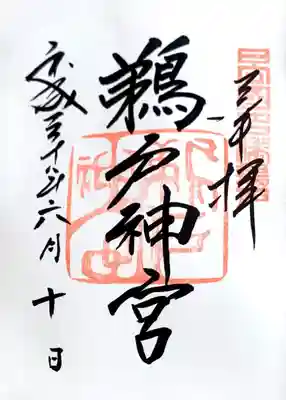 奉拝
鵜戸神宮
平成二十八年六月十日